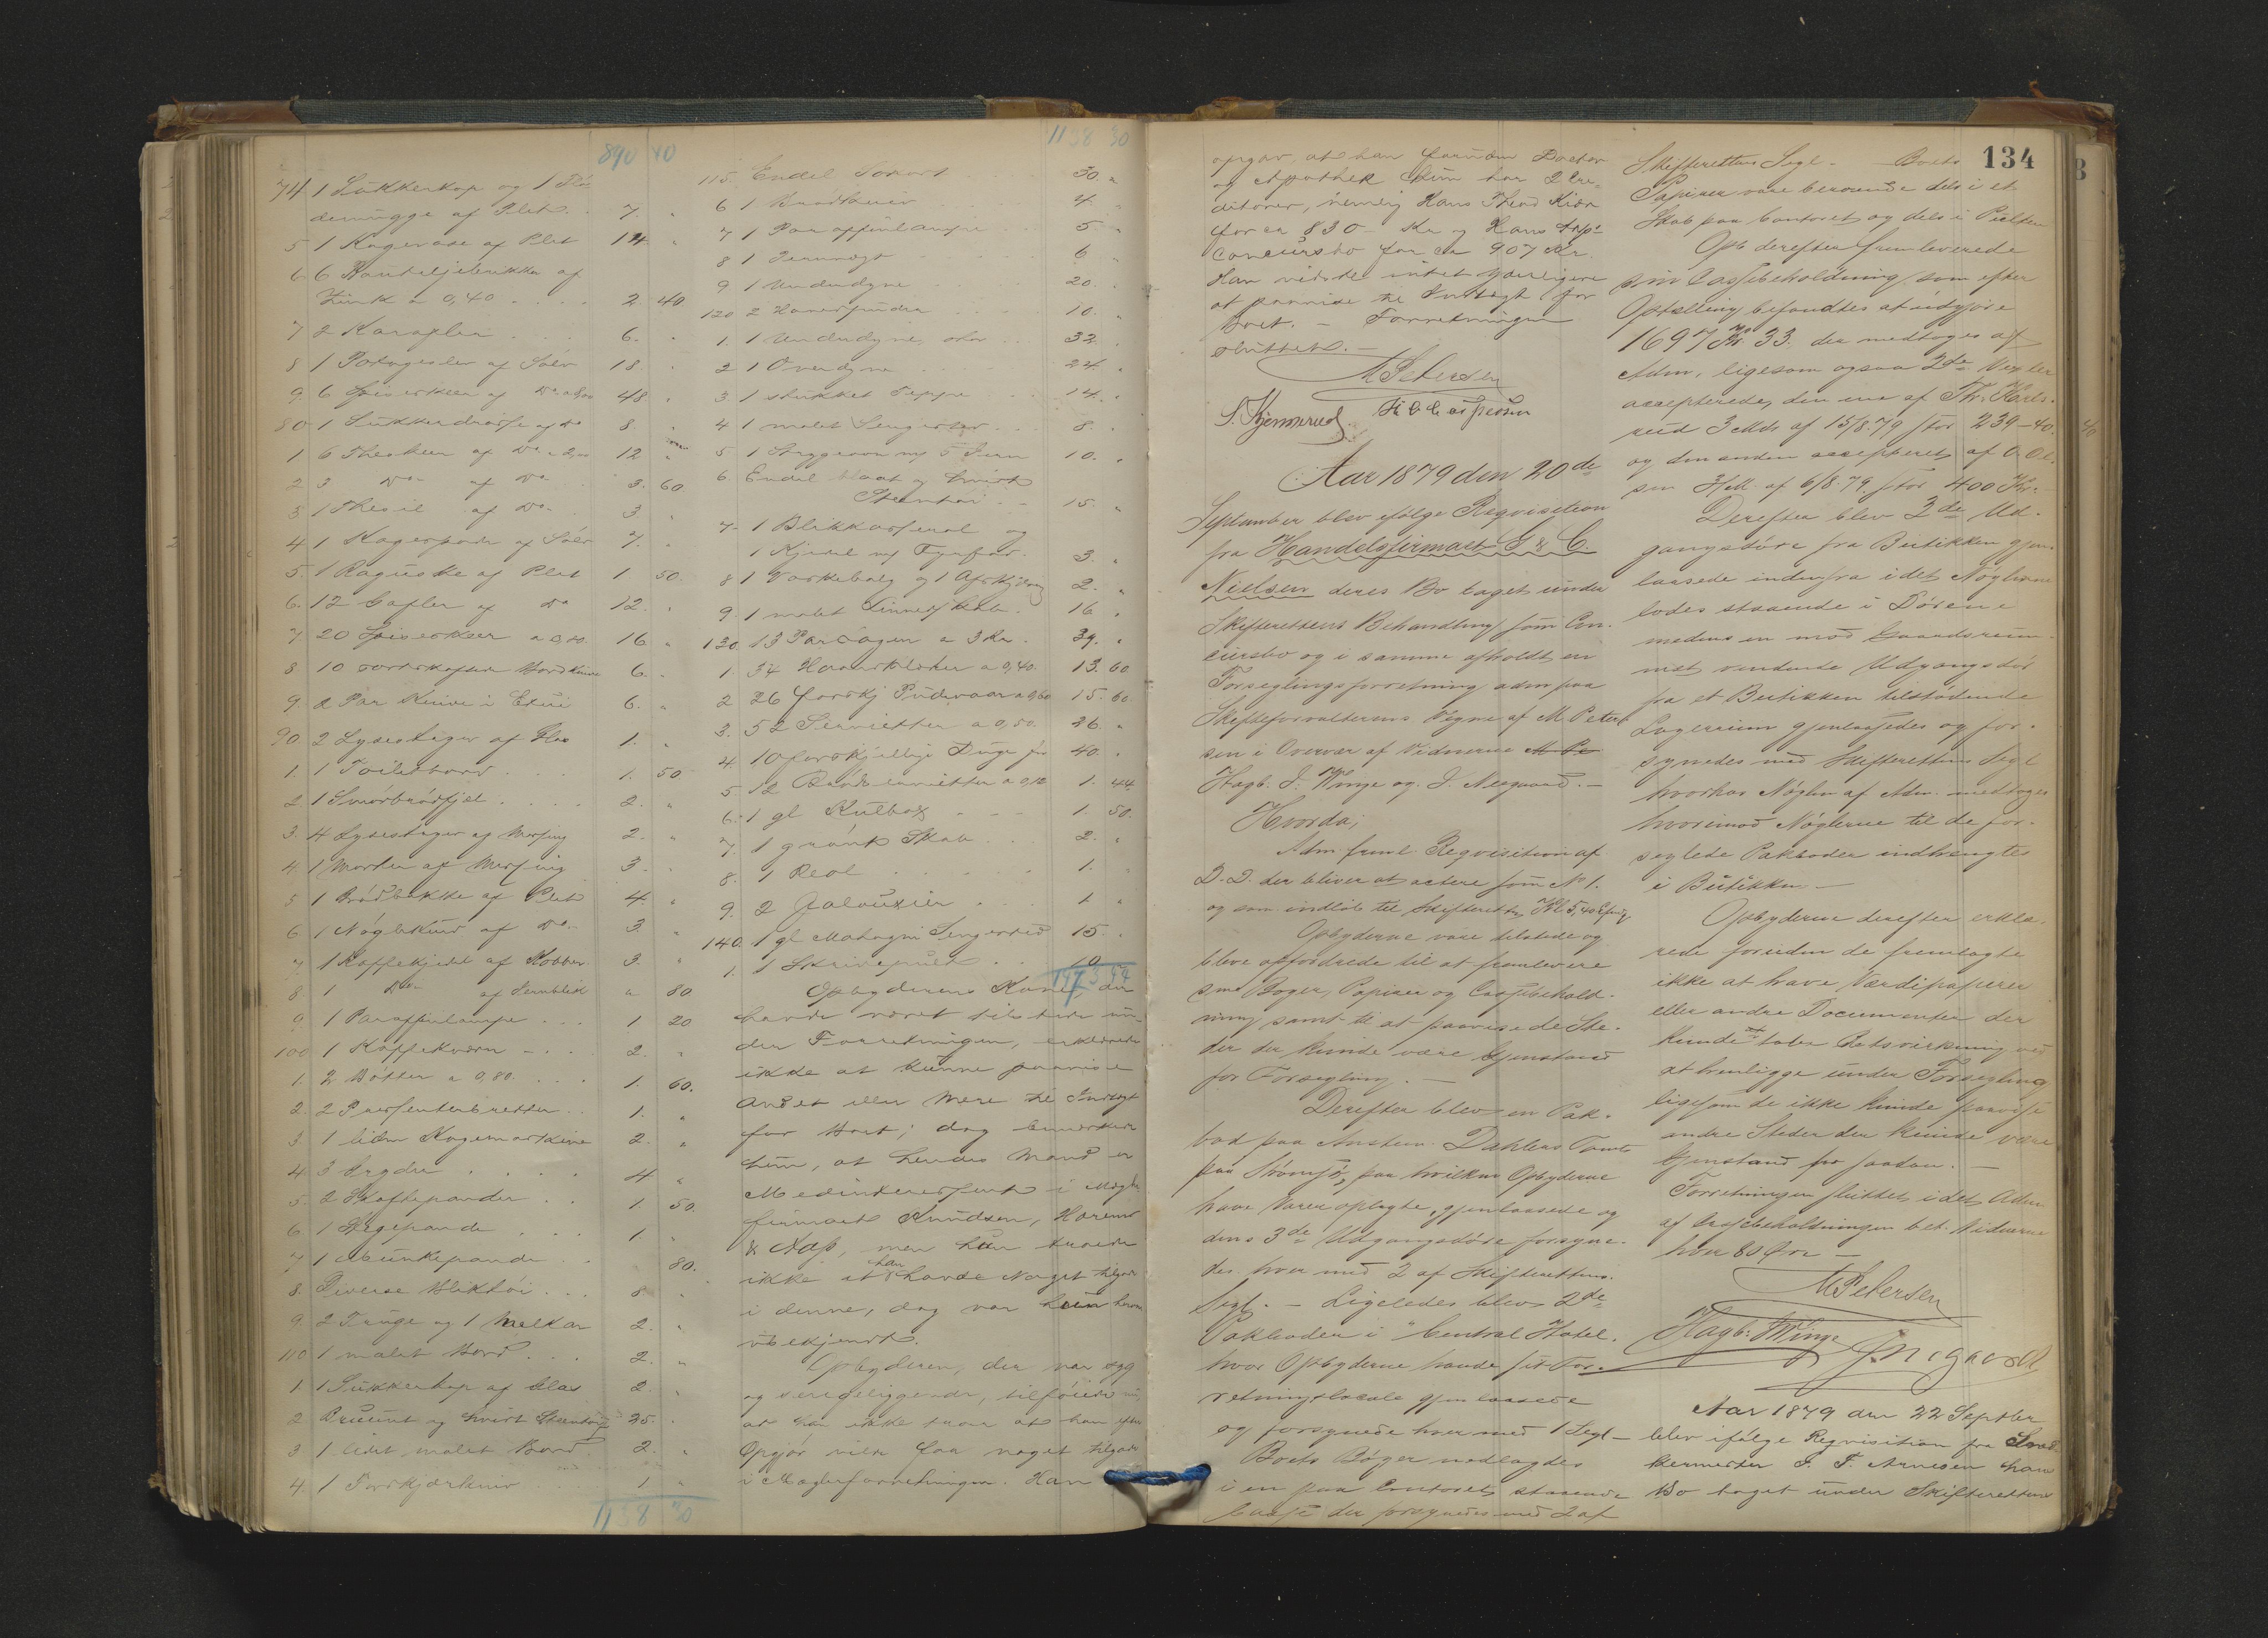 890 40
74 1 Sukkerkop og 1 Flö-
demugge af Plet . 7. "
5 1 Kagevase af Plet 14. "
6 6 af
Zink a 0,40 . . . . 2. 40
7 2 Karafler . . . 6. "
8 1 Potageslev af Sölv 18 "
9. 6 Spiseskeer af Do 48. "
80 1 af Do 8. "
1 6 Theskeer af Do 12 "
2 3 Do af Do 3. 60
3 1 Thesil af Do 3 "
4 1 Kagespade af Sölv 7. "
5. 1 Raguske af Plet 1 50.
6. 12 Gafler af Do 12. "
7 20 a 0,80. 16 "
8 10 6. "
9. 2 Par Knive i Etui 6. "
90. 2 Lysestager af Plet 1. "
1. 1 Toiletbord . . . 1. 50
2 1 Smörbrödfjel . . . 2. "
3. 4 Lysestager af Messing 2. "
4. 1 Morter af Messing 3. "
5 1 Brödbakke af Plet 4. "
6 1 Nöglekurv af Do 3. "
7. 1 Kaffekjedel af Kobber. 3. "
8. 1 Do af Jernblik " 80
9 1 Parafinlampe . . . 1 20
100 1 Kaffekværn - . . . 2. "
1. 2 Bötter a 0,80. . . . 1. 60.
2. 2 Presenterbretter . . 1. "
3 1 liden Kagemaskine 2. "
4. 3 Krydder . . . . 4 "
5. 2 Stegepander . . 1. 50.
6. 1 . . . 1 "
7 1 Munkepande . . 80.
8. Diverse Bliktöi . . . 8 "
9. 2 Truge og 1 Melkar 2. "
110 1 malet Bord . . . 2. "
1. 1 Sukkerkop af Glas 2. "
2 Brüünt og hvidt Steentöi 25. "
3 1 lidet malet Bord 2. "
4. 1 1 "
1138 30
1138 30
115. Endel 30. "
6 1 . . . 4. "
7 1 Parafinlampe . . 5. "
8 1 Jernvægt . . . 6 "
9 1 Underdyne . . . 20. "
120 2 Hovedpuder . . . 10. "
1. 1 Underdyne, . . 32. "
2 1 Overdyne . . . 24. "
3. 1 stukket Teppe . . 14. "
4 1 malet Sengested . . . 8. "
5 1 Strygeovn m/ 5 Jern 10. "
6. Endel blaat og hvidt
Steentöi . - 15. "
7- 1 og
1 Kjedel m/ Fyrfad. 3. "
8 1 Vaskebalg og 1 2. "
9. 1 malet Linnedskab. 16 "
130. 13 Par Lagen a 3 Kr. 39. "
1. 34 a 0,40. 13. 60
2 26 forskj Pudevaar a 0,60 15. 60.
3. 52 Servietter a 0,50. 26. "
4. 10 forskjellige Duge for 40. "
5. 12 servietter a 0,12 1. 44
6.- 1 gl Kulbox - - - 1. 50.
7. 1 grönt Skab . . . 2. "
8. 1 Reol . . . . 1. "
9. 2 Jalousier . . . 1. "
140. 1 gl Mahogni Sengested 15. "
1. 1 Skrivepult . . 10. "
Opbyderens Kone, der
havde været tilstede un-
der Forretningen, erklærede
ikke at kunne paavise
Andet eller Mere til Indtægt
for Boet; dog bemærkede
hun, at hendes Mand er
Medinteressent i Mægler
firmaet Knudsen,
& men hun troede
ikke at han havde Noget tilgode
i denne, dog var hun herom
ubekjendt.
Opbyderen, der var syg
og sengeliggende, tilföiede
at han ikke troer at han efter
Opgjör vilde faa noget tilgode
i Mæglerforretningen. Han
134
opgav, at han foruden Doctor
og Apothek kun har 2 Cre-
ditorer, nemlig Hans Kiær
for ca 830- Kr og Hans
Concursbo for ca 907 Kr.
Han vidste intet yderligere
at paavise til Indtægt for
Boet. - Forretningen
sluttet. -
M Petersen
S. Kjennerud
Aar 1879 den 20de
September blev ifölge Reqvisition
fra Handelsfirmaet G & C.
Nielsen deres Bo taget under
Skifterettens Behandling som Con-
cursbo og i samme afholdt en
Forseglingsforretning adm paa
Skifteforvalterens Vegne af M Peter-
sen i Overvær af Vidnerne
Hagb. J. Winge og J. Neegaard. -
Hvorda;
Adm. freml Reqvisition af
D. D. der bliver at actere som No 1.
og som indlöb til Skifteretten Kl 5,40
Opbyderne vare tilstede og
bleve opfordrede til at fremlevere
sine Böger, Papirer og Cassebehold-
ning samt til at paavise de Ste-
der der kunde være Gjenstand
for Forsegling. -
Derefter blev en Pak-
bod paa Dahlers Tomt
paa Strömsö, paa hvilken Opbyderne
have Varer oplagte, gjenlaasede og
dens 3de Udgangsdöre forsyne-
des hver med 2 af Skifterettens
Segl. - Ligeledes blev 2de
Pakboder i "Central Hotel,
hvor Opbyderne havde sit For-
retningslocale gjenlaasede
og forsynede hver med 1 Segl -
Boets Böger nedlagdes
i en paa Contoret staaende
Casse der forsynedes med 2 af
Skifterettens Segl - Boets
Papirer vare beroende dels i et
Skab paa Contoret og dels i Pulten
Opb derefter fremleverede
sin Cassebeholdning, som efter
Optælling befandtes at udgjöre
1697 Kr 33. der medtoges af
Adm, ligesom ogsaa 2de Vexler
accepterede, den ene af Th. Karls-
rud 3 Mdr af 15/8. 79 stor 239-40.
og den anden accepteret af O. Ol-
sen 3 M. af 6/8. 79. stor 400 Kr. -
Derefter blev 2de Ud-
gangsdöre fra Butikken gjen-
laasede indenfra idet Nöglerne
lodes staaende i Dörene
medens en mod Gaardsrum-
met vendende Udgangsdör
fra et Butikken tilstödende
Lagerrum gjenlaasedes og for-
synedes med Skifterettens Segl
hvorhos Nöglen af Adm. medtoges
hvorimod Nöglerne til de for-
seglede Pakboder indhængtes
i Butikken -
Opbyderne derefter erklæ-
rede foruden de fremlagte
ikke at have Værdipapirer
eller andre Documenter der
kunde tabe Retsvirkning ved
at henligge under Forsegling
ligesom de ikke kunde paavise
andre Steder der kunde være
Gjenstand for saadan. -
Forretningen sluttet idet Adm
af Cassebeholdningen bet. Vidnerne
hver 80 Öre -
M Petersen
Hagb: J Winge J. Neegaard
Aar 1879 den 22 Septbr
blev ifölge Reqvisition fra Sned-
kermester J. F. Arnesen hans
Bo taget under Skifterettens